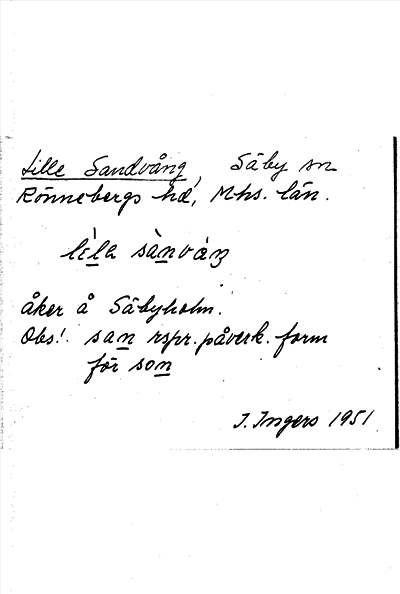 Lille Sandvång, Säby sn
Rönnebergs hd, Mhs. län.
lìla sànváŋ
åker å Säbyholm.
Obs! san rspr. påverk. form
för son
I. Ingers 1951